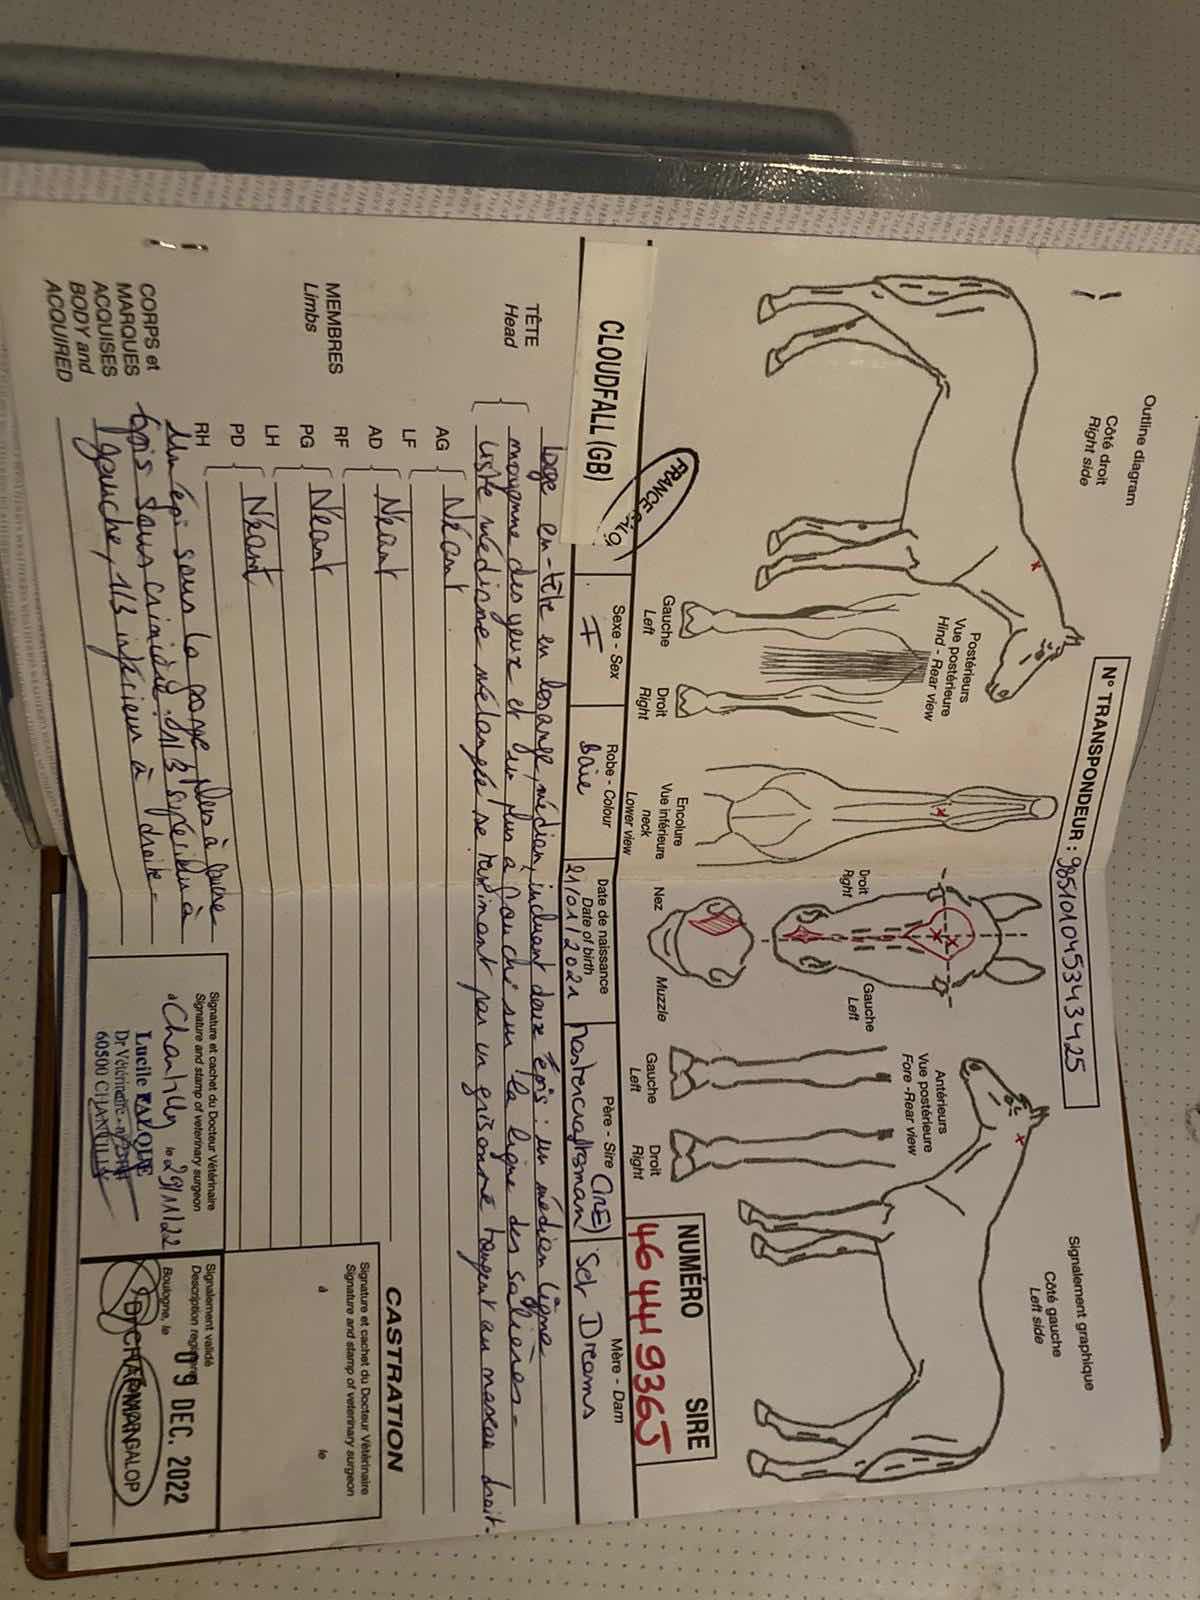 Outline diagram
Côté droit
Right side
N° TRANSPONDEUR : 985101045343425
Signalement graphique
Côté gauche
Left side
Postérieurs
Vue postérieure
Hind - Rear view
Gauche
Left
Droit
Right
Encolure
Vue inférieure
neck
Lower view
Droit
Right
Gauche
Left
Nez
Muzzle
Antérieurs
Vue postérieure
Fore - Rear view
Gauche
Left
Droit
Right
NUMÉRO SIRE
46444 19365
FRANCE GALOP
CLOUDFALL (GB)
Sexe - Sex
F
Robe - Colour
baie
Date de naissance
Date of birth
21/01/2021
Père - Sire
Mastercraftsman (IRE)
Mère - Dam
Set Dreams
TÊTE
Head
Large en-tête en losange, médian, incluant deux épis : un médian ligne
moyenne des yeux et un plus à gauche sur la ligne des salières -
Liste médiane mélangée se terminant par un grisonné tangent au naseau droit.
MEMBRES
Limbs
AG
LF
Néant
AD
RF
Néant
PG
LH
Néant
PD
RH
Néant
CORPS et
MARQUES
ACQUISES
BODY and
ACQUIRED
Un épi sous la gorge à gauche
Epis sous crinière : 1/3 supérieur à
gauche, 1/3 inférieur à droite -
Signature et cachet du Docteur Vétérinaire
Signature and stamp of veterinary surgeon
à Chantilly le 29/11/22
Lucile
Dr Vétérinaire
60500 CHANTILLY
CASTRATION
Signature et cachet du Docteur Vétérinaire
Signature and stamp of veterinary surgeon
à le
Signalement validé
Description registered
Boulogne, le 09 DEC. 2022